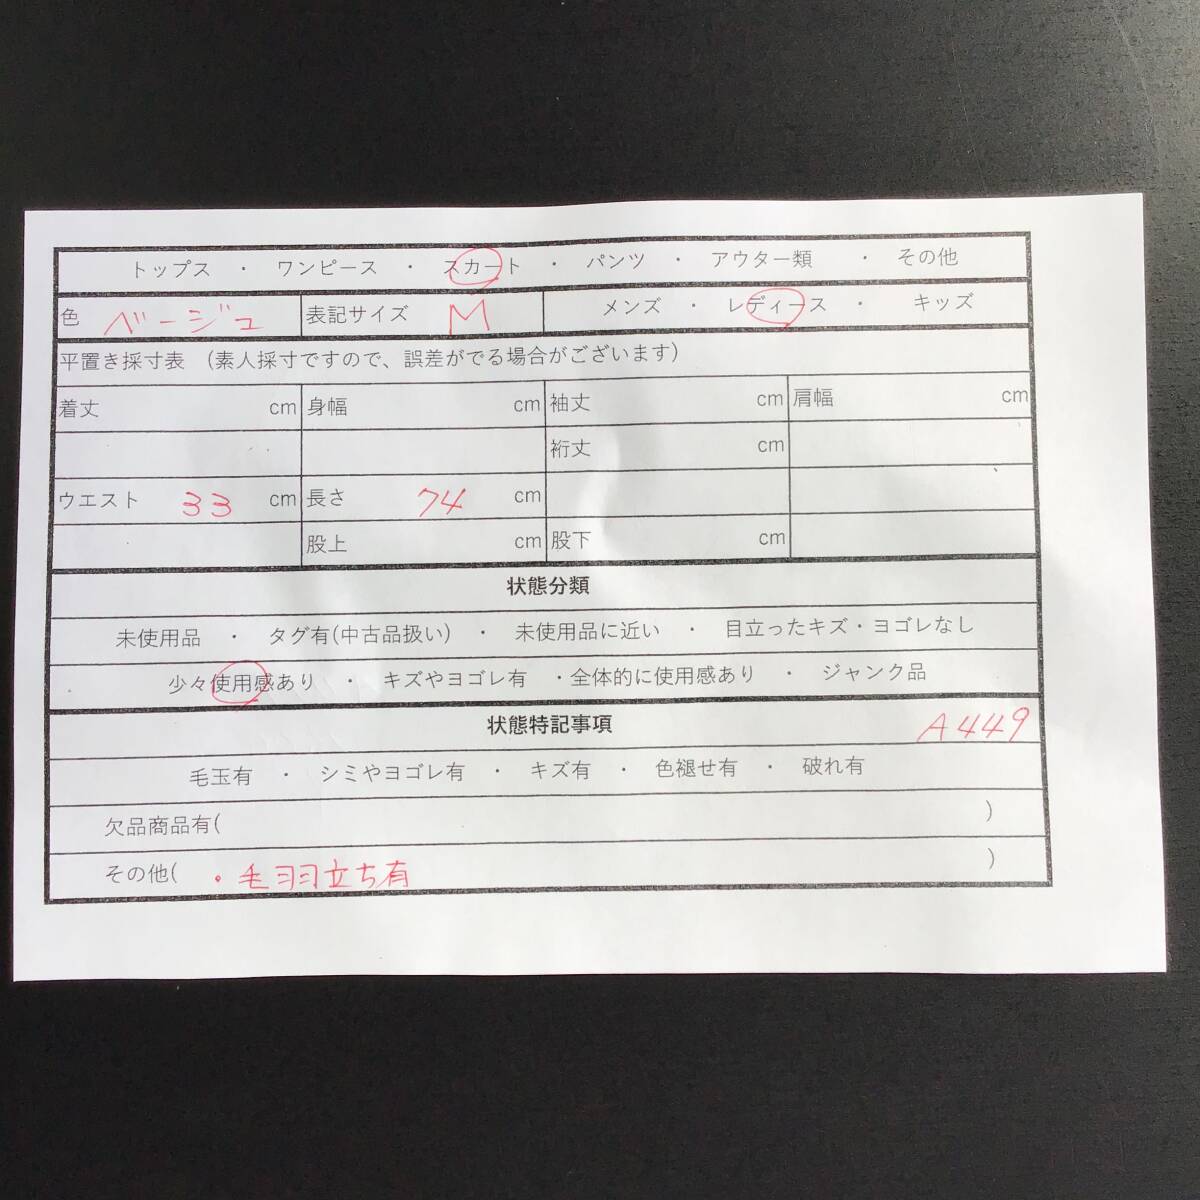 トップス ・ ワンピース ・ スカート ・ パンツ ・ アウター類 ・ その他
色 ベージュ 表記サイズ M メンズ ・ レディース ・ キッズ
平置き採寸表 (素人採寸ですので、誤差がでる場合がございます)
着丈 cm 身幅 cm 袖丈 cm 肩幅 cm
裄丈 cm
ウエスト 33 cm 長さ 74 cm
股上 cm 股下 cm
状態分類
未使用品 ・ タグ有(中古品扱い) ・ 未使用品に近い ・ 目立ったキズ・ヨゴレなし
少々使用感あり ・ キズやヨゴレ有 ・全体的に使用感あり ・ ジャンク品
状態特記事項 A449
毛玉有 ・ シミやヨゴレ有 ・ キズ有 ・ 色褪せ有 ・ 破れ有
欠品商品有( )
その他( ・毛羽立ち有 )